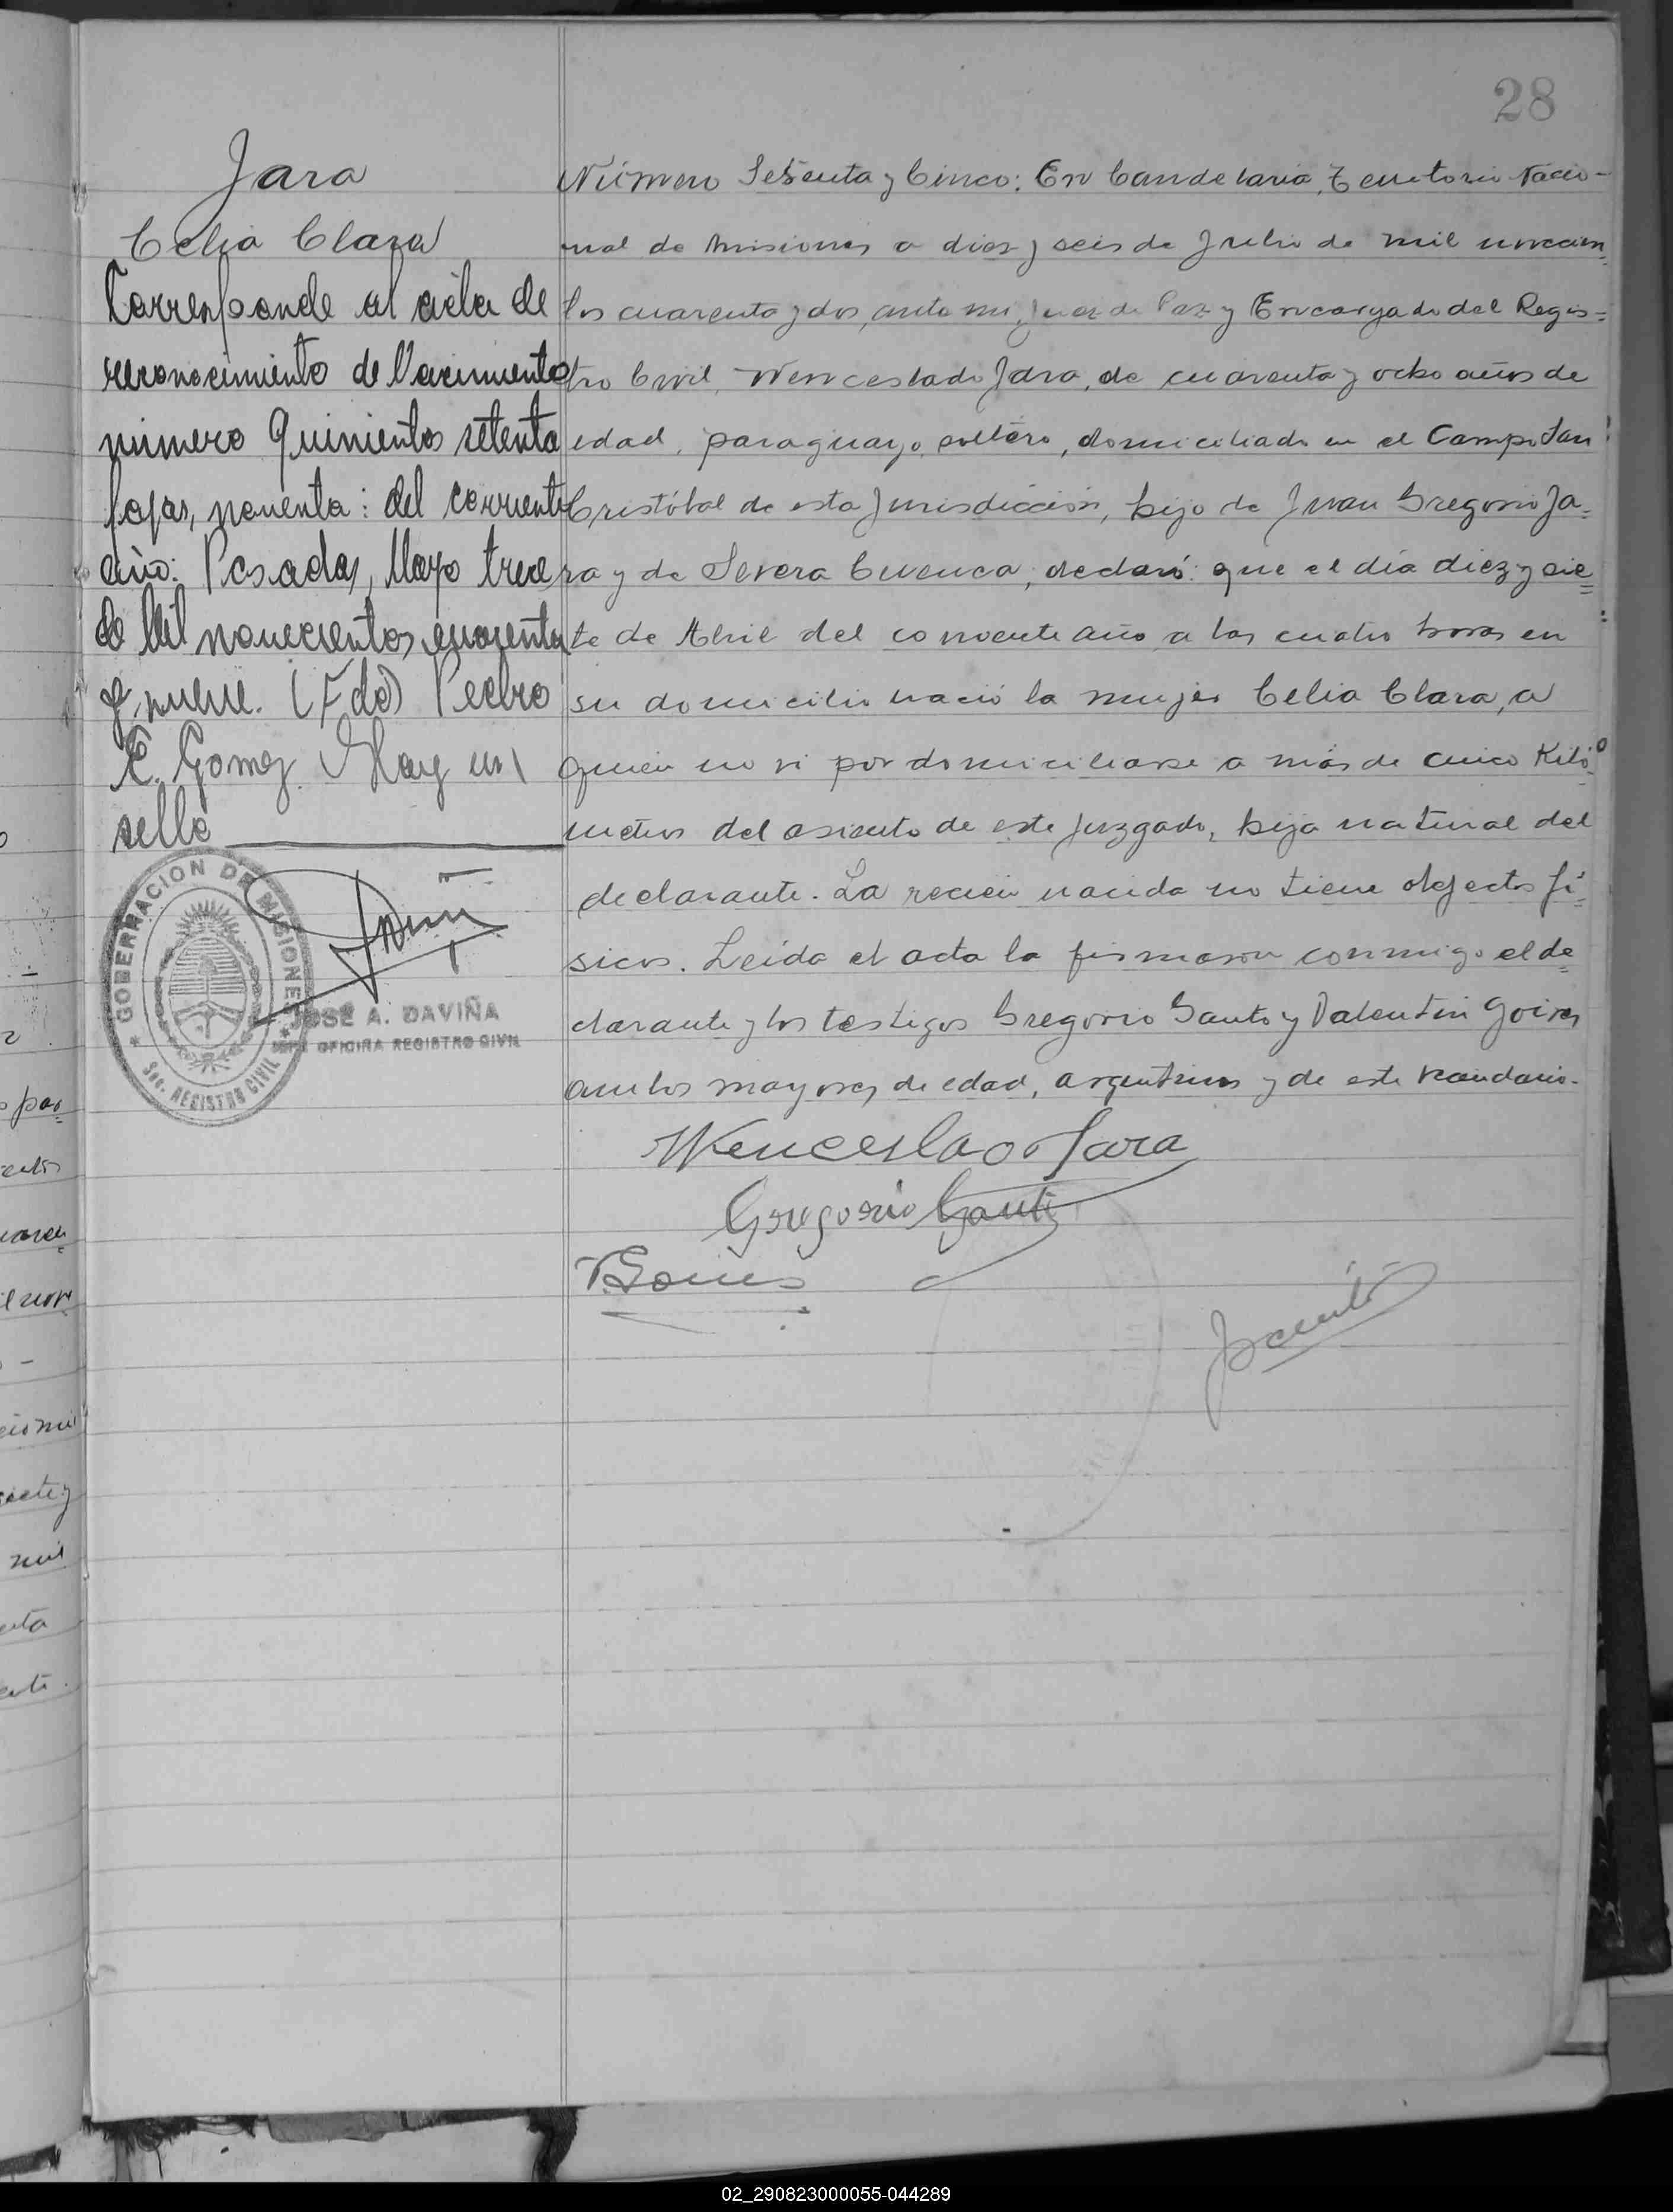 28
Jara
Celia Clara
Corresponde al acta de
reconocimiento de Nacimiento
número Quinientos setenta
fojas, noventa: del corriente
año: Posadas, Mayo trece
de Mil novecientos cuarenta
y nueve. (Fdo) Pedro
E. Gomez. Hay un
sello
GOBERNACION DE MISIONES
Sec. REGISTRO CIVIL
JOSÉ A. DAVIÑA
JEFE OFICINA REGISTRO CIVIL
Número Sesenta y Cinco: En Candelaria, Territorio Nacio-
nal de Misiones a diez y seis de Julio de mil novecien=
tos cuarenta y dos, ante mi, Juez de Paz y Encargado del Regis=
tro Civil, Wenceslado Jara, de cuarenta y ocho años de
edad, paraguayo, soltero, domiciliado en el Campo San
Cristóbal de esta Jurisdicción, hijo de Juan Gregorio Ja=
ra y de Severa Cuenca, declaró: que el día diez y sie=
te de Abril del corriente año a las cuatro horas en
su domicilio nació la mujer Celia Clara, a
quien no vi por domiciliarse a más de cinco Kiló=
metros del asiento de este Juzgado, hija natural del
declarante. La recien nacida no tiene defectos fí=
sicos. Leída el acta la firmaron conmigo el de=
clarante y los testigos Gregorio Gauto y Valentin
ambos mayores de edad, argentinos y de este
Wenceslao Jara
Gregorio Gauto
02_290823000055-044289